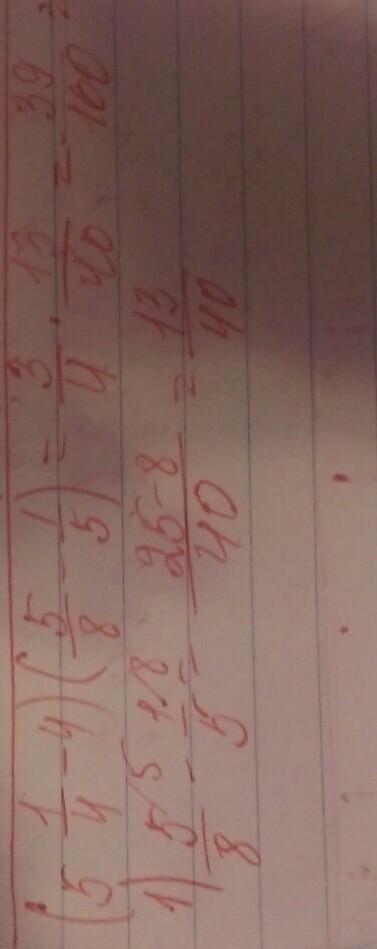 (5 1/4 - 4)(5/8 - 1/5) = 3/4 · 13/40 = 39/160
1) 5/8 /5 - 1/5 /8 = 25-8/40 = 13/40